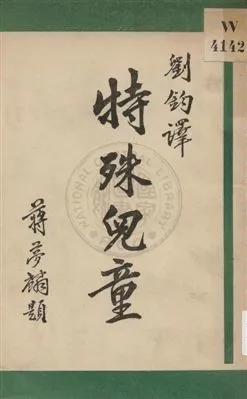 W
4142
劉鈞譯
特殊兒童
蔣夢麟題
NATIONAL CENTRAL LIBRARY